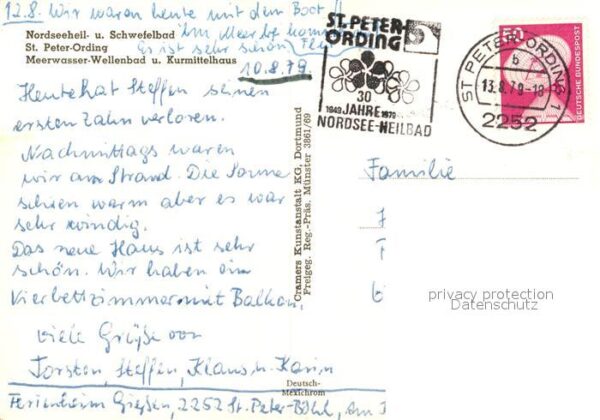 12.8. Wir waren heute mit dem Boot!!
Nordseeheil- u. Schwefelbad
St. Peter-Ording
Es ist sehr schön
Meerwasser-Wellenbad u. Kurmittelhaus
10.8.79
Heute hat Steffen seinen
ersten Zahn verloren.
Nachmittags waren
wir am Strand. Die Sonne
schien warm aber es war
sehr windig.
Das neue Haus ist sehr
schön. Wir haben ein
Vierbettzimmer mit Balkon.
viele Grüße von
Torsten, Steffen, Klaus u. Karin
Ferienheim Gießen, 2252 St. Peter-Böhl, Am
Cramers Kunstanstalt KG, Dortmund
Freigeg. Reg.-Präs. Münster 3861/69
Deutsch-
Mexichrom
ST. PETER-
ORDING
30
1949 JAHRE 1979
NORDSEE-HEILBAD
ST PETER-ORDING 1
b
13.8.79-18
2252
50
DEUTSCHE BUNDESPOST
Familie
privacy protection
Datenschutz